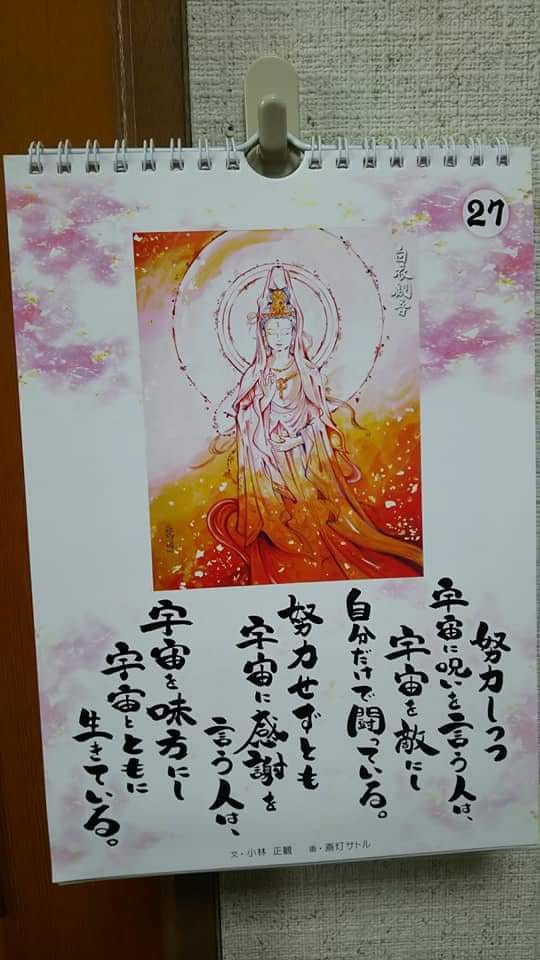 27
白衣観音
努力しつつ
宇宙に呪いを言う人は、
宇宙を敵にし
自分だけで闘っている。
努力せずとも
宇宙に感謝を
言う人は、
宇宙を味方にし
宇宙とともに
生きている。
文・小林 正観 画・斎灯サトル